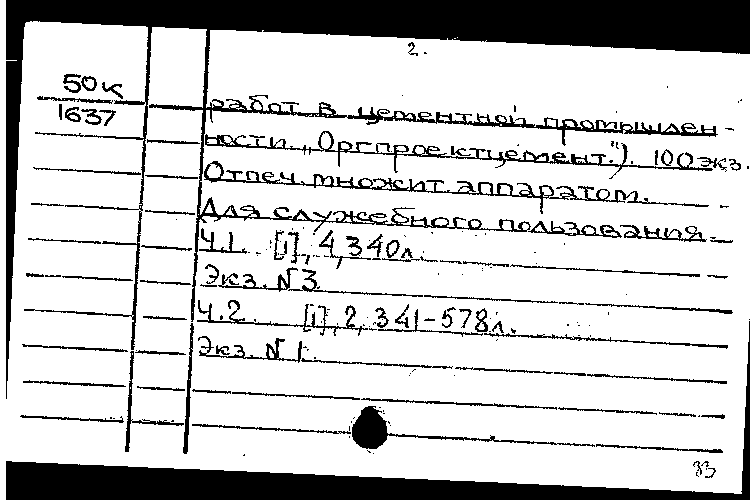 2.
50к
1637
работ в цементной промышлен-
ности „Оргпроектцемент"). 100 экз.
Отпеч. множит. аппаратом.
Для служебного пользования.
Ч.1. [1], 4, 340л.
Экз. N3
Ч.2. [1], 2, 341-578л.
Экз. N1.
33